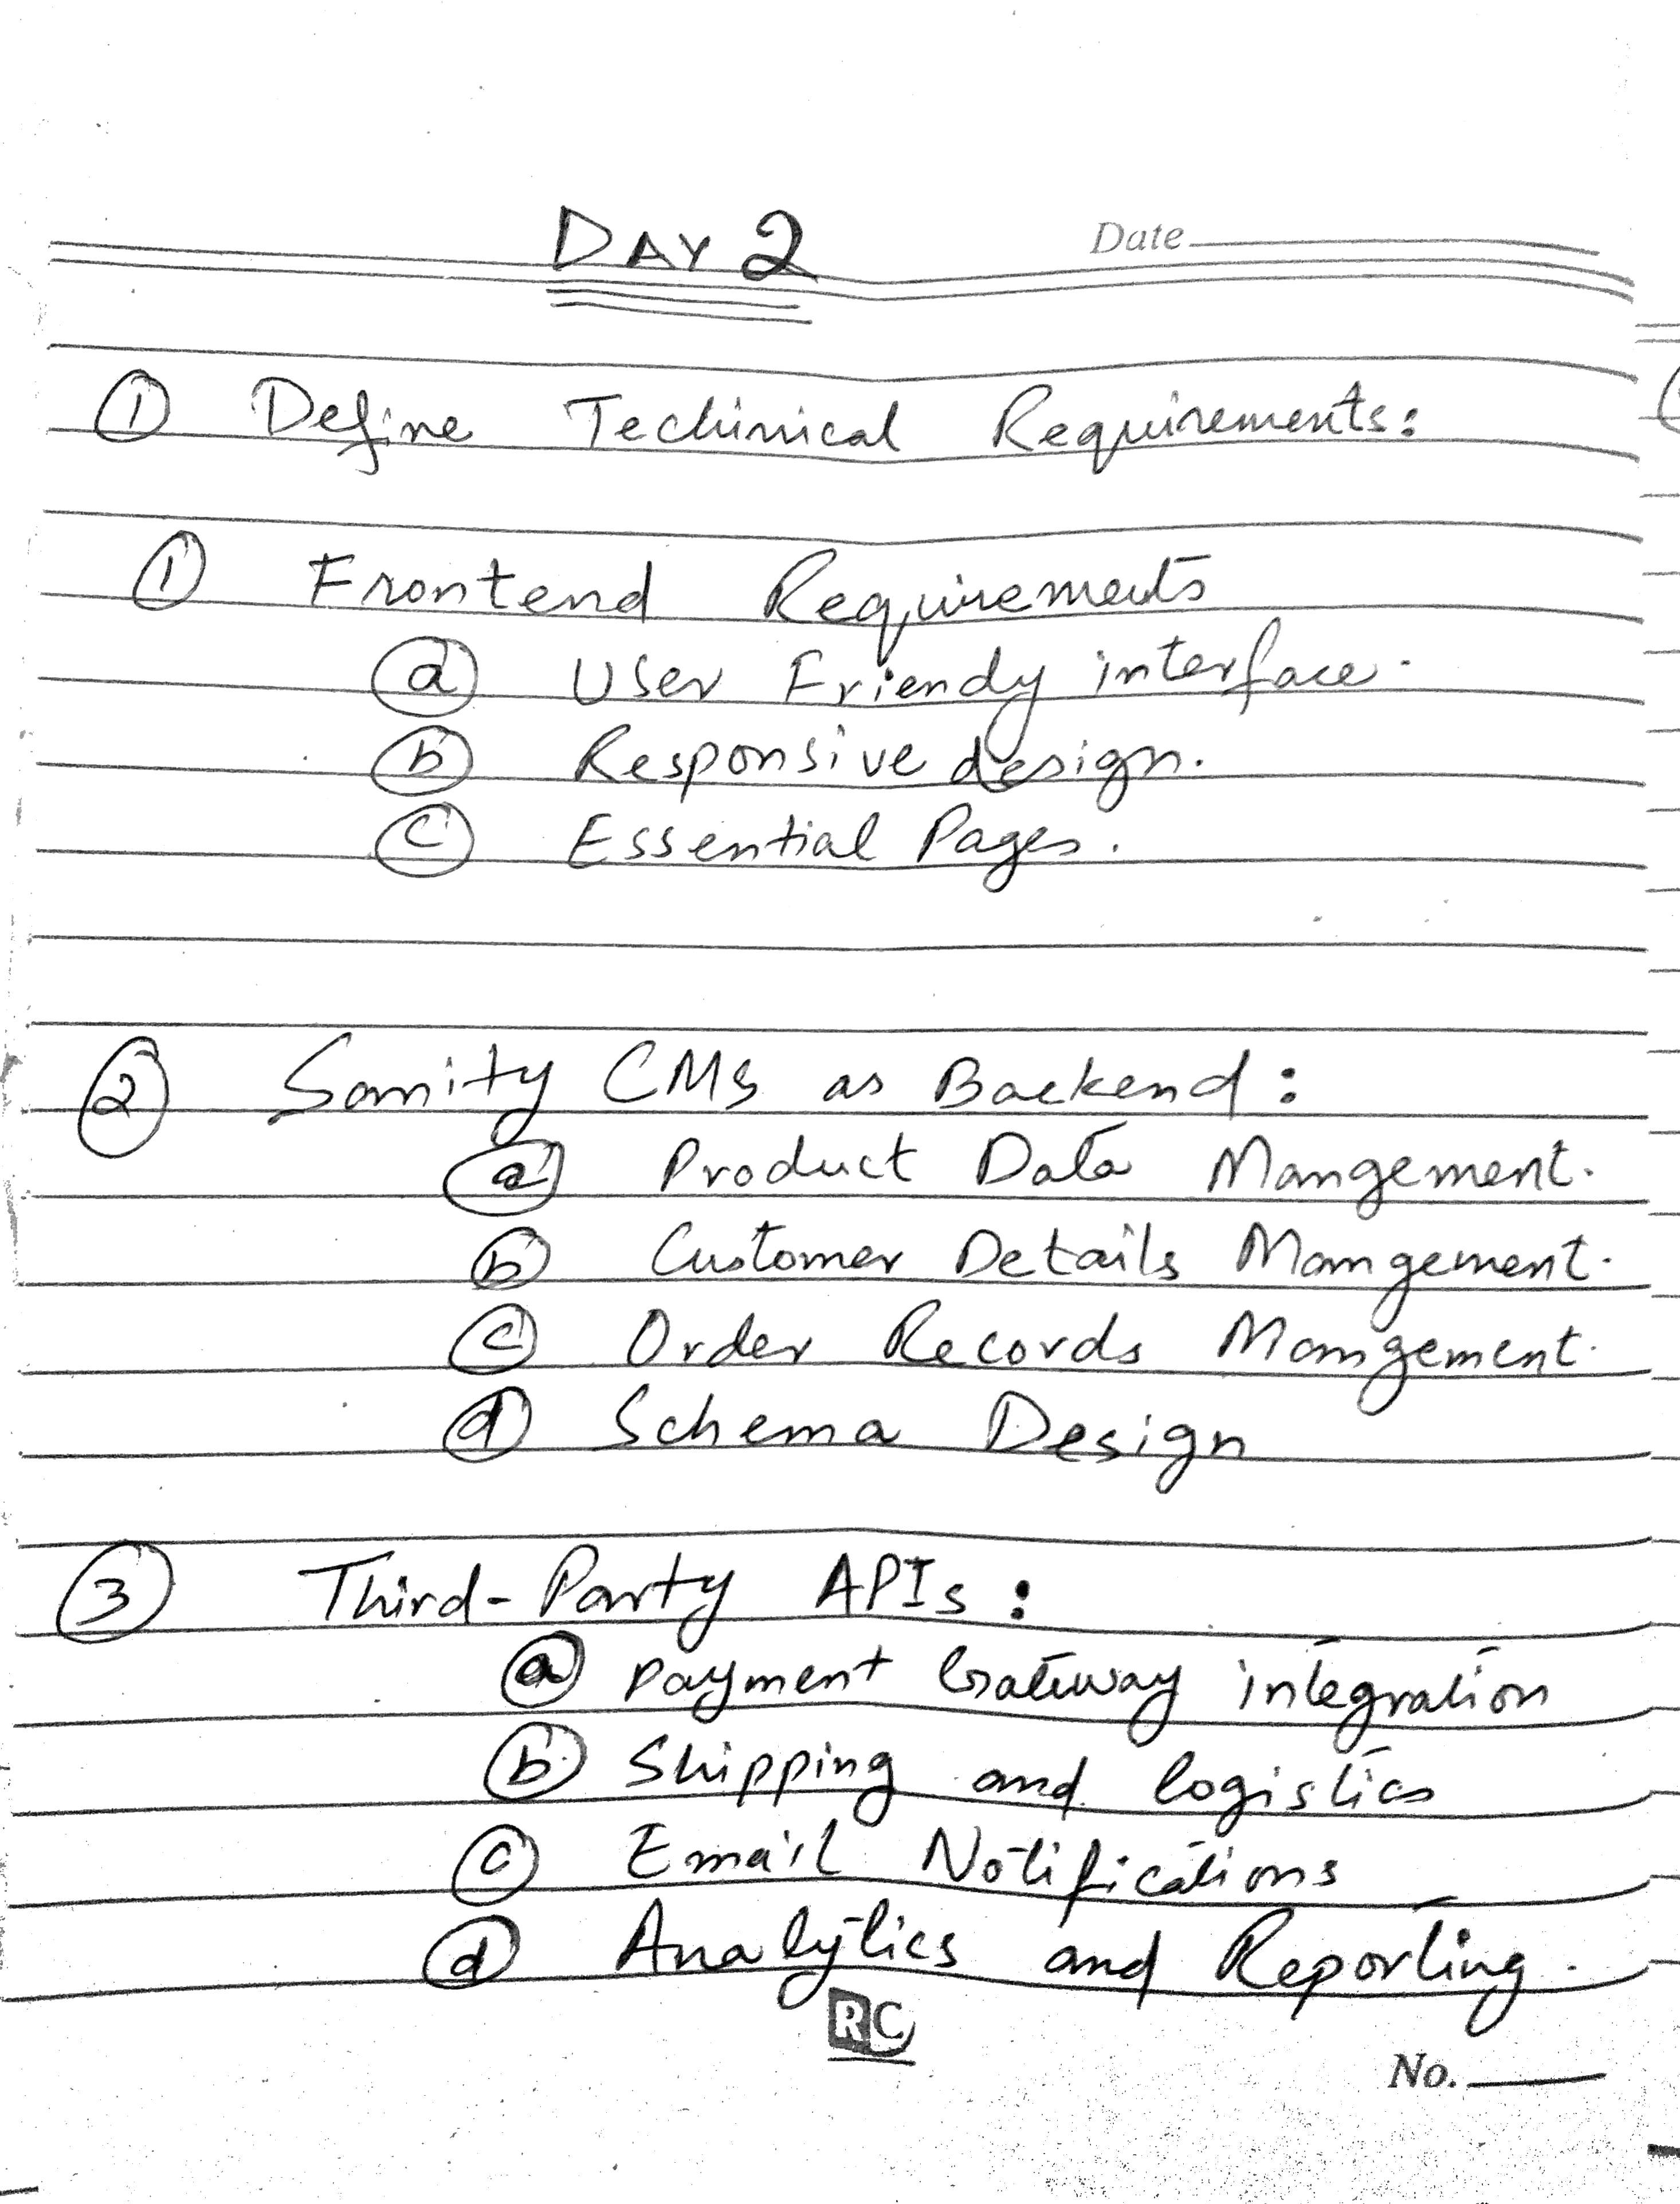 DAY 2
Date
① Define Techinical Requirements:
① Frontend Requirements
ⓐ User Friendy interface.
ⓑ Responsive design.
ⓒ Essential Pages.
② Sanity CMS as Backend:
ⓐ Product Data Mangement.
ⓑ Customer Details Mangement.
ⓒ Order Records Mangement.
ⓓ Schema Design
③ Third-Party APIs:
ⓐ Payment Gateway integration
ⓑ Shipping and logistics
ⓒ Email Notifications
ⓓ Analytics and Reporting.
RC
No.